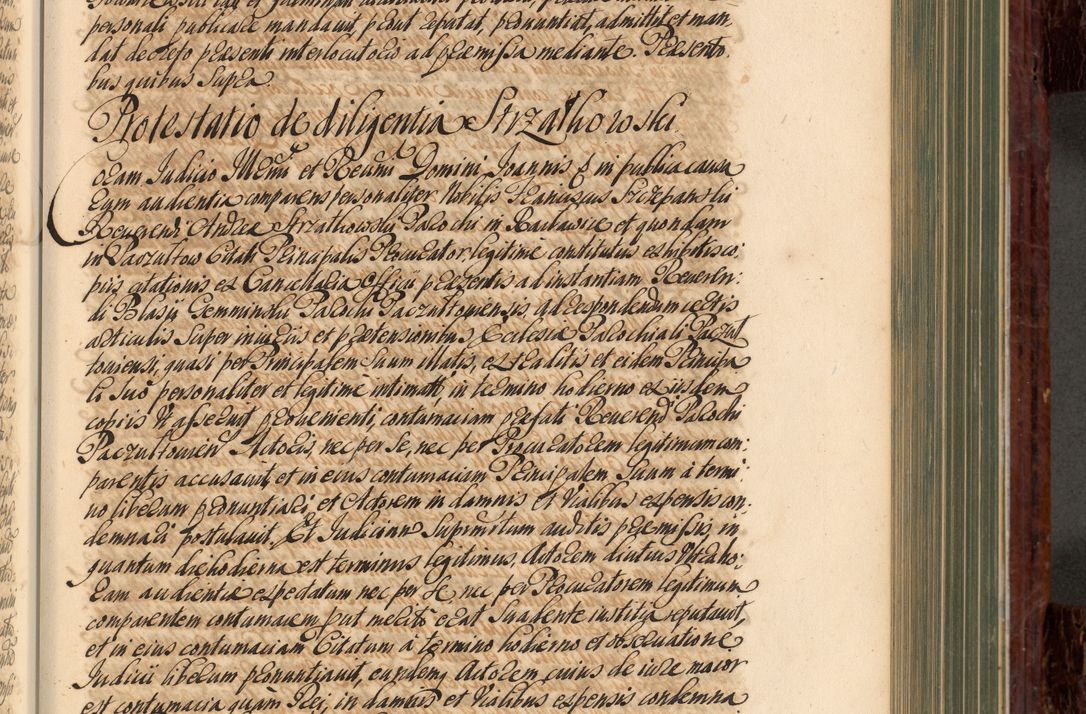 personali publicare mandavit, prout reputat, pronuntiat, admittit et man
dat decreto praesenti interlocutorio ad praemissa mediante. Praesenti
bus quibus supra.
Protestatio de diligentia Strzałkowski.
Coram Judicio Illmi et Rndmi Domini Joannis in publica causa
rum audientia comparens personaliter Nobilis Franciscus Szczepanski
Reverendi Andreae Strzałkowski Parochi in Racławice et quondam
in Paczułtow Citati Principalis Procurator legitime constitutus exhibitis co:
piis citationis ex Cancellaria Officii praesentis ad instantiam Reveren:
di Blasij Parochi Paczułtoviensis, ad respondendum certis
articulis super injuriis et praetensionibus Ecclesiae Parochiali Paczuł
toviensi, quasi per Principalem Suum illatis, et eidem Principa
li Suo personaliter et legitime intimatt, in termino hodierno ex iisdem
copiis ut asseruit provenienti, contumaciam praefati Reverendi Parochi
Paczułtovien Actoris, nec per Se, nec per Procuratorem legitimum com:
parentis accusavit, et in ejus contumaciam Principalem Suum à termi
no liberum pronuntiari, et Actorem in damnis et Vialibus expensis con:
demnari postulavit, Et Judicium Suprascriptum auditis praemissis, in
quantum dies hodierna est terminus legitimus, Actorem diutius Vltra ho:
ram audientiae expedatum nec per Se nec per Procuratorem legitimum
comparentem contumacem prout merito erat suadente iustitia reputavit,
et in ejus contumaciam Citatum à termino hodierno et observatione
Judicii liberum pronuntiavit, eundemq Actorem, cuius de iure maior
est contumacia quam Rei, in damnis et Vialibus expensis condemna